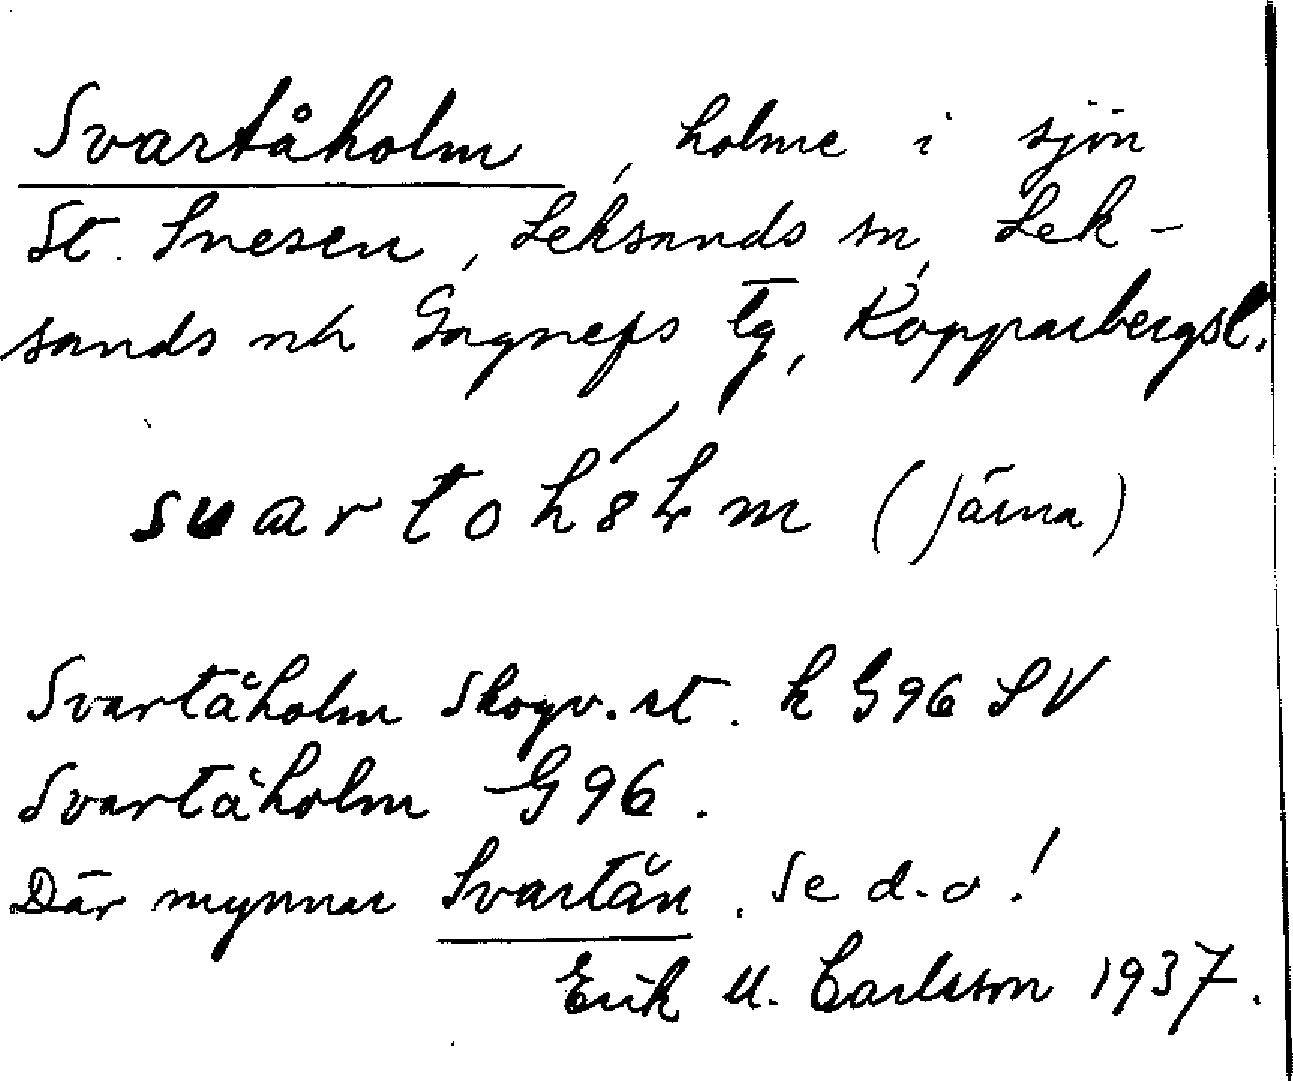 Svartåholm, holme i sjön
St. Snesen, Leksands sn, Lek-
sands och Gagnefs tg, Kopparbergsl.
(Järna)
Svartåholm Skogv. st. k G96 SV
Svartåholm G96.
Där mynnar Svartån. Se d.o!
Erik U. Carlsson 1937.